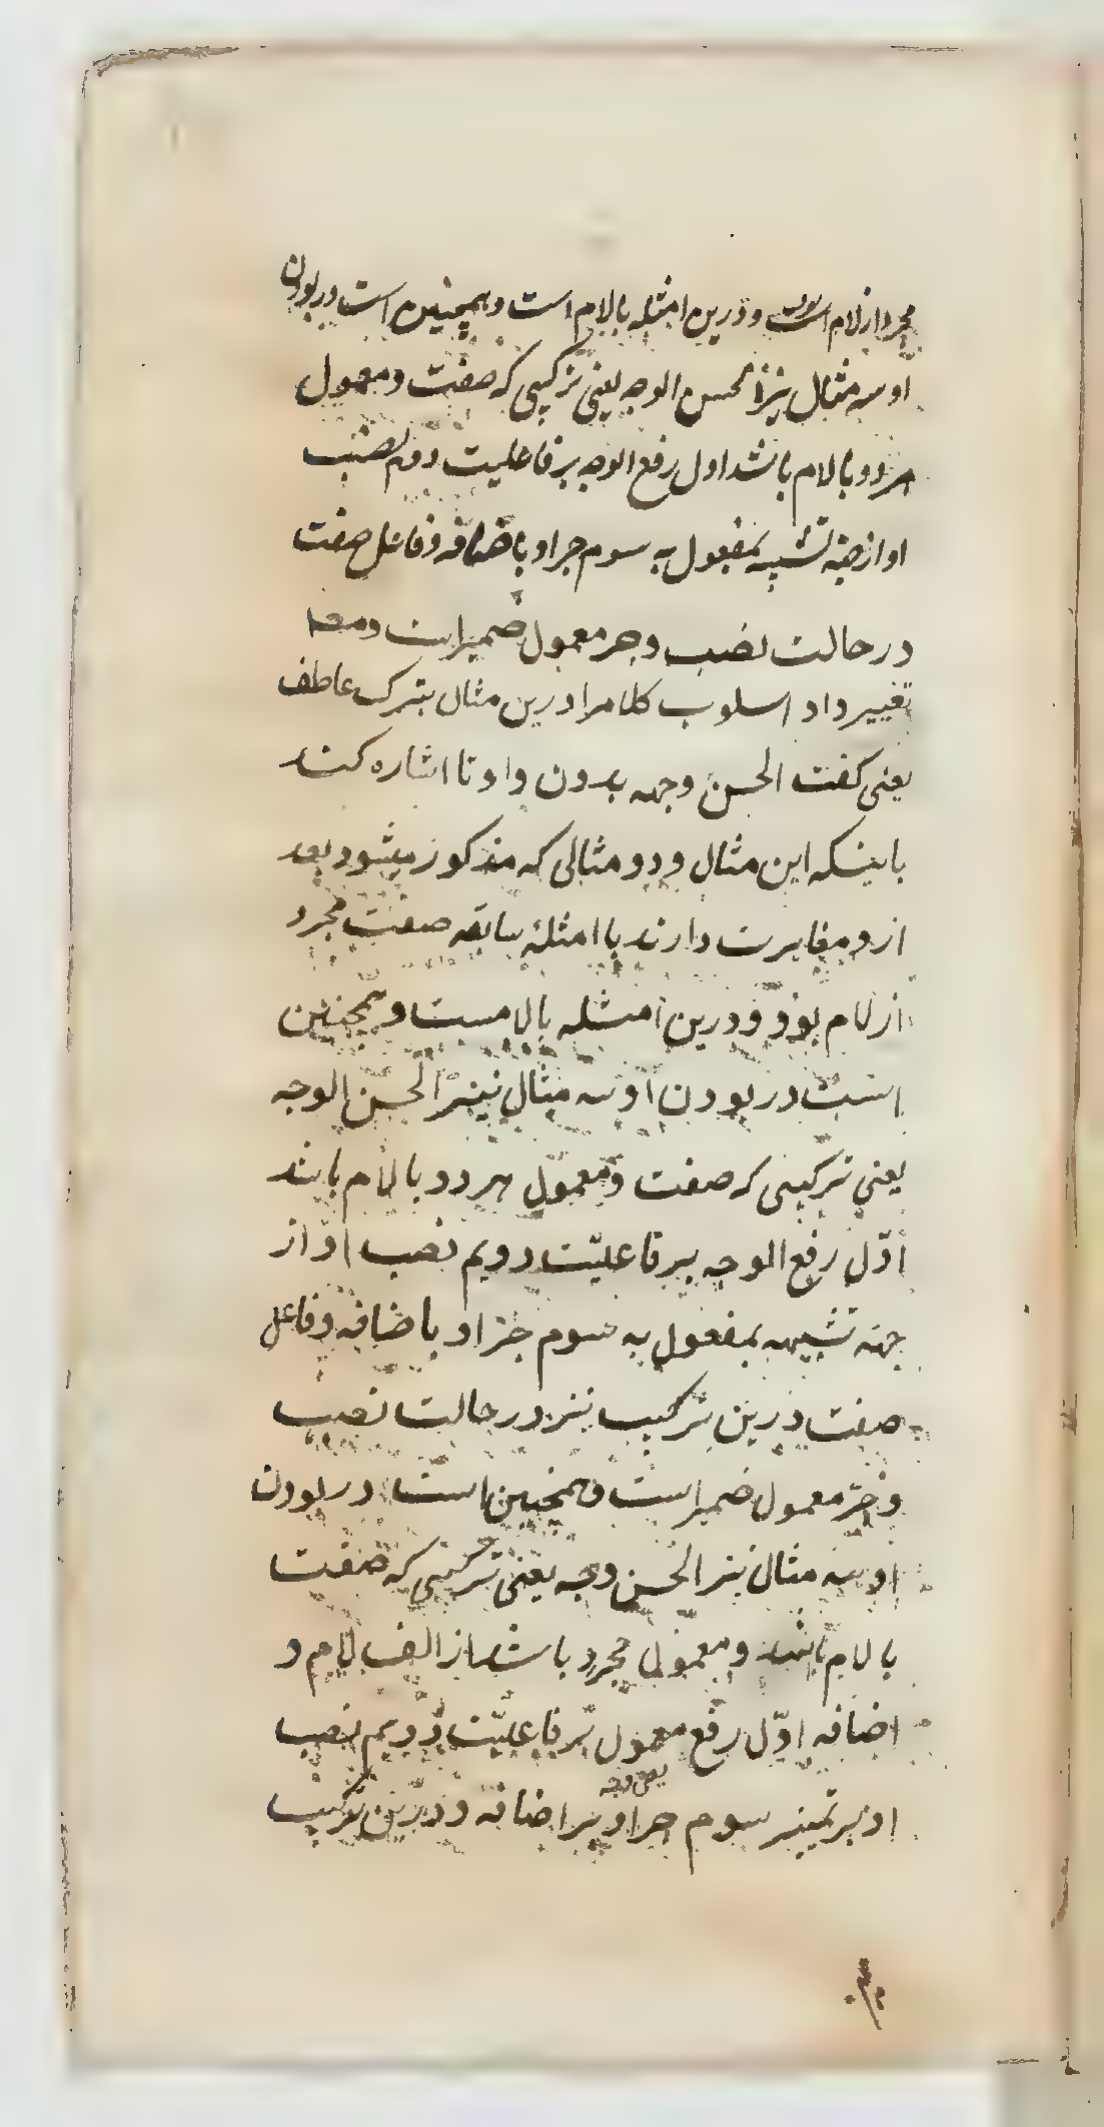 مجرد از لام است و درین امثله بالام است و همچنین است در بودن
او سه مثال نیز الحسن الوجه یعنی ترکیبی که صفت و معمول
هر دو بالام باشد اول رفع الوجه بر فاعلیت دوم نصب
او از جهة تشبیه بمفعول به سوم جر او باضافه و فاعل صفت
در حالت نصب و جر معمول ضمیر است و مص
تغییر داد اسلوب کلامرا درین مثال بترک عاطف
یعنی کفت الحسن وجهه بدون واو تا اشاره کند
باینکه این مثال و دو مثالی که مذکور میشود بعد
ازو مغایرت دارند با امثلهٔ سابقه صفت مجرد
از لام بود و درین امثله بالامست و همچنین
است در بودن او سه مثال نیز الحسن الوجه
یعنی ترکیبی که صفت و معمول هر دو بالام باشد
اوّل رفع الوجه بر فاعلیّت دویم نصب او از
جهة تشبیهه بمفعول به سوم جر او باضافه و فاعل
صفت درین ترکیب نیز در حالت نصب
و جرّ معمول ضمیر است و همچنین است در بودن
او سه مثال نیز الحسن وجه یعنی ترکیبی که صفت
بالام باشد و معمول مجرد باشد از الف لام و
اضافه اوّل رفع معمول بر فاعلیّت دویم نصب
یعنی وجه
او بر تمییز سوم جر او بر اضافه و درین ترکیب